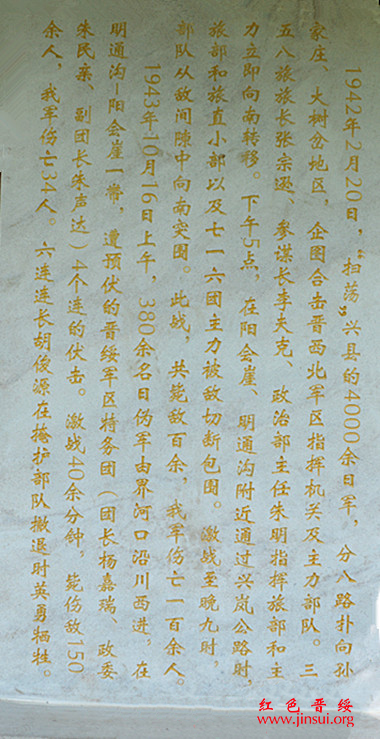 1942年2月20日，“扫荡”兴县的4000余日军，分八路扑向孙
家庄、大树岔地区，企图合击晋西北军区指挥机关及主力部队。三
五八旅旅长张宗逊、参谋长李夫克、政治部主任朱明指挥旅部和主
力立即向南转移。下午5点，在阳会崖、明通沟附近通过兴岚公路时，
旅部和旅直小部以及七一六团主力被敌切断包围。激战至晚九时，
部队从敌间隙中向南突围。此战，共毙敌百余，我军伤亡一百余人。
1943年10月16日上午，380余名日伪军由界河口沿川西进，在
明通沟—阳会崖一带，遭预伏的晋绥军区特务团（团长杨嘉瑞、政委
朱民亲、副团长朱声达）4个连的伏击。激战40余分钟，毙伤敌150
余人，我军伤亡34人。六连连长胡俊源在掩护部队撤退时英勇牺牲。
红色晋绥
www.jinsui.org